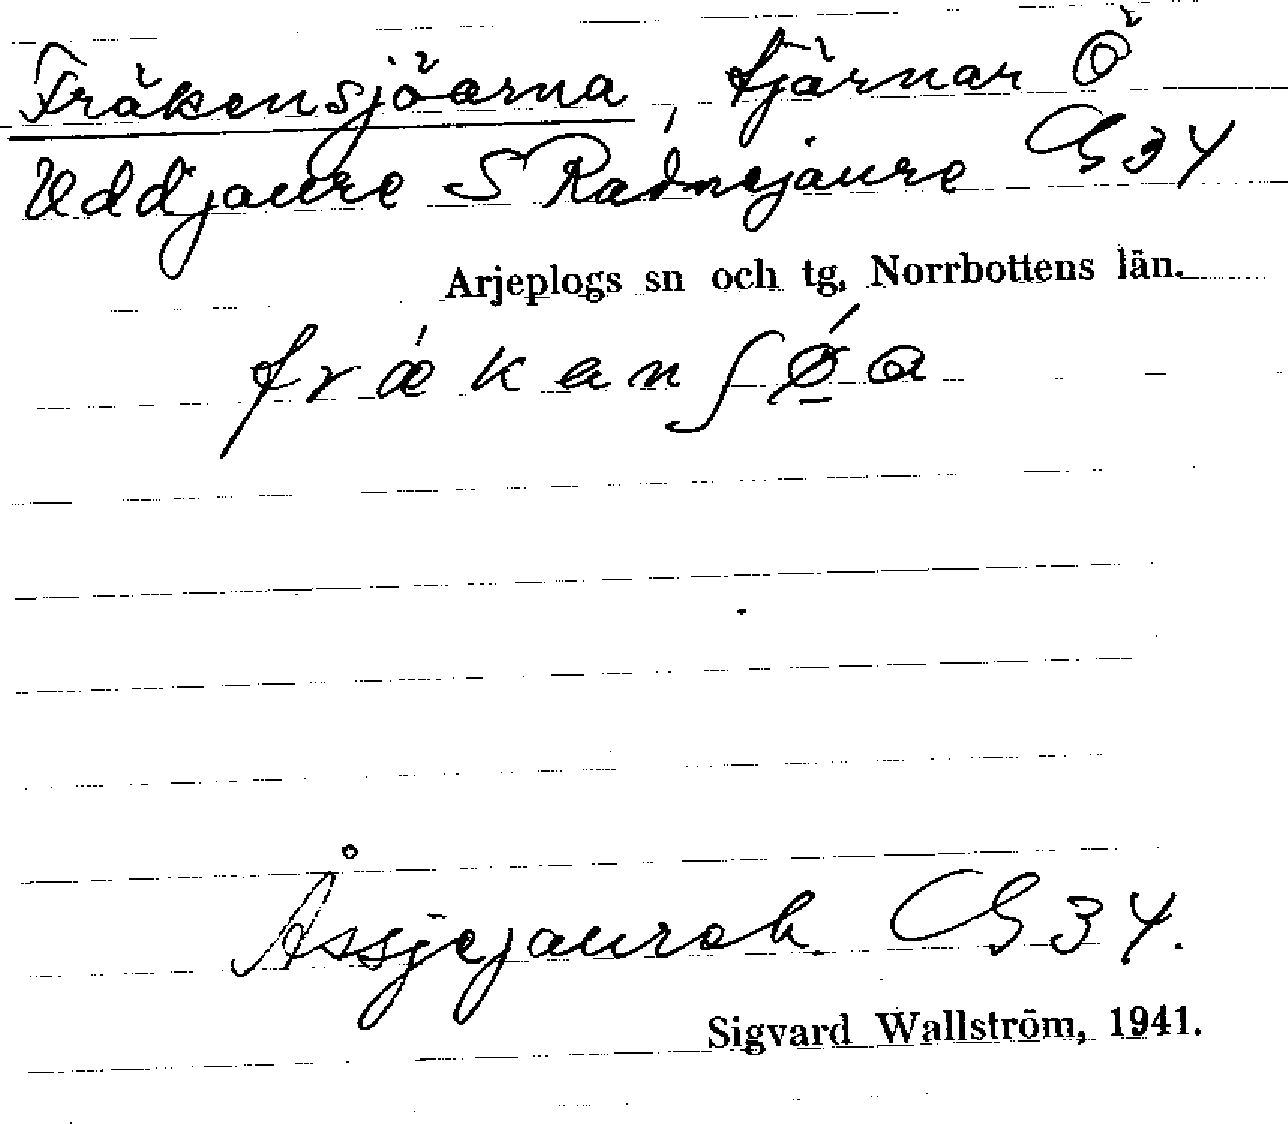 Fräkensjöarna, tjärnar Ö
Uddjaure S Radnejaure G 34
Arjeplogs sn och tg, Norrbottens län.
frǽkanʃǿ̱a
Åssjejaurek. G 34.
Sigvard Wallström, 1941.